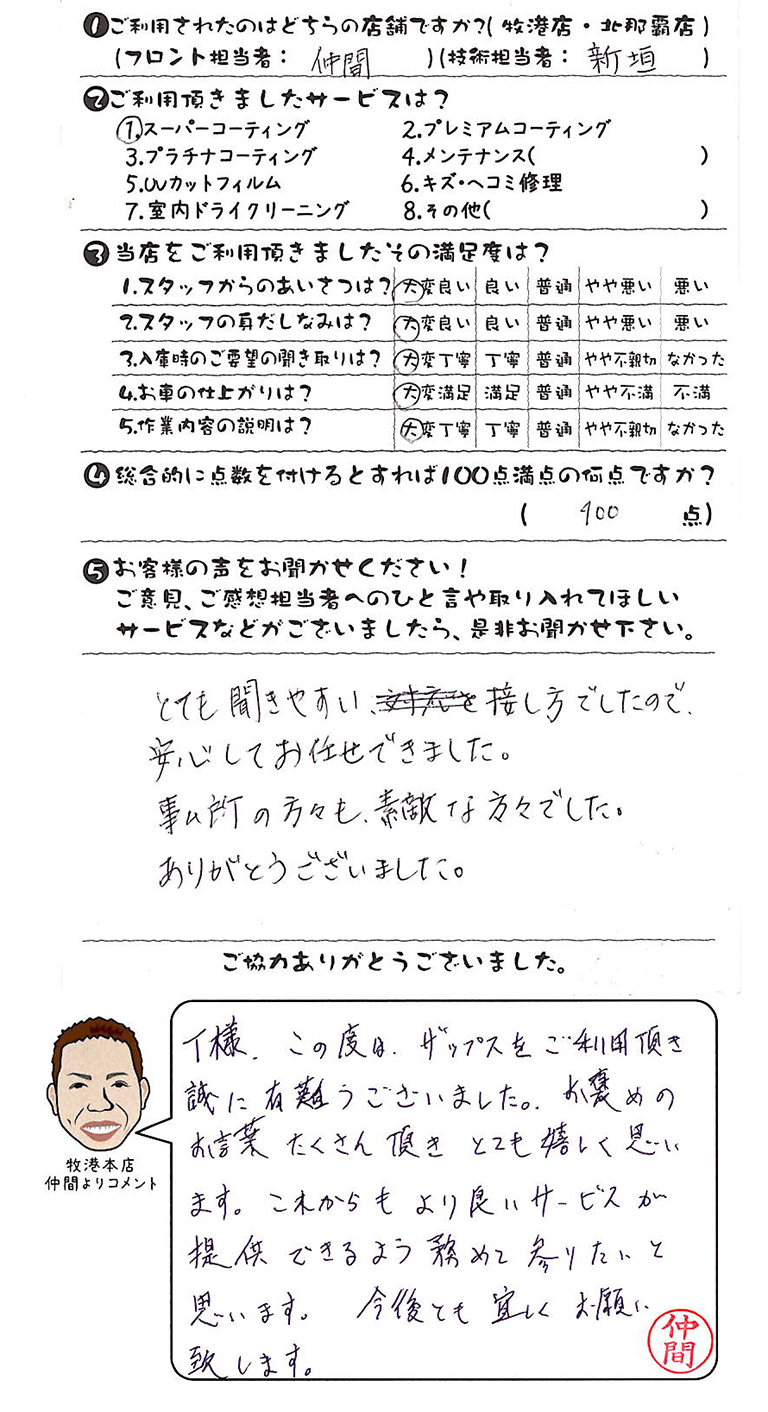 ❶ご利用されたのはどちらの店舗ですか?(牧港店・北那覇店)
(フロント担当者: 仲間 )(技術担当者: 新垣 )
❷ご利用頂きましたサービスは?
1.スーパーコーティング 2.プレミアムコーティング
3.プラチナコーティング 4.メンテナンス( )
5.UVカットフィルム 6.キズ・ヘコミ修理
7.室内ドライクリーニング 8.その他( )
❸当店をご利用頂きましたその満足度は?
1.スタッフからのあいさつは? 大変良い 良い 普通 やや悪い 悪い
2.スタッフの身だしなみは? 大変良い 良い 普通 やや悪い 悪い
3.入庫時のご要望の聞き取りは? 大変丁寧 丁寧 普通 やや不親切 なかった
4.お車の仕上がりは? 大変満足 満足 普通 やや不満 不満
5.作業内容の説明は? 大変丁寧 丁寧 普通 やや不親切 なかった
❹総合的に点数を付けるとすれば100点満点の何点ですか?
( 100 点)
❺お客様の声をお聞かせください!
ご意見、ご感想担当者へのひと言や取り入れてほしい
サービスなどがございましたら、是非お聞かせ下さい。
とても聞きやすい、接し方でしたので、
安心してお任せできました。
事ム所の方々も、素敵な方々でした。
ありがとうございました。
ご協力ありがとうございました。
T様、この度は、ザップスをご利用頂き
誠に有難うございました。お褒めの
お言葉たくさん頂きとても嬉しく思い
ます。これからもより良いサービスが
提供できるよう務めて参りたいと
思います。 今後とも宜しくお願い
致します。
仲間
牧港本店
仲間よりコメント